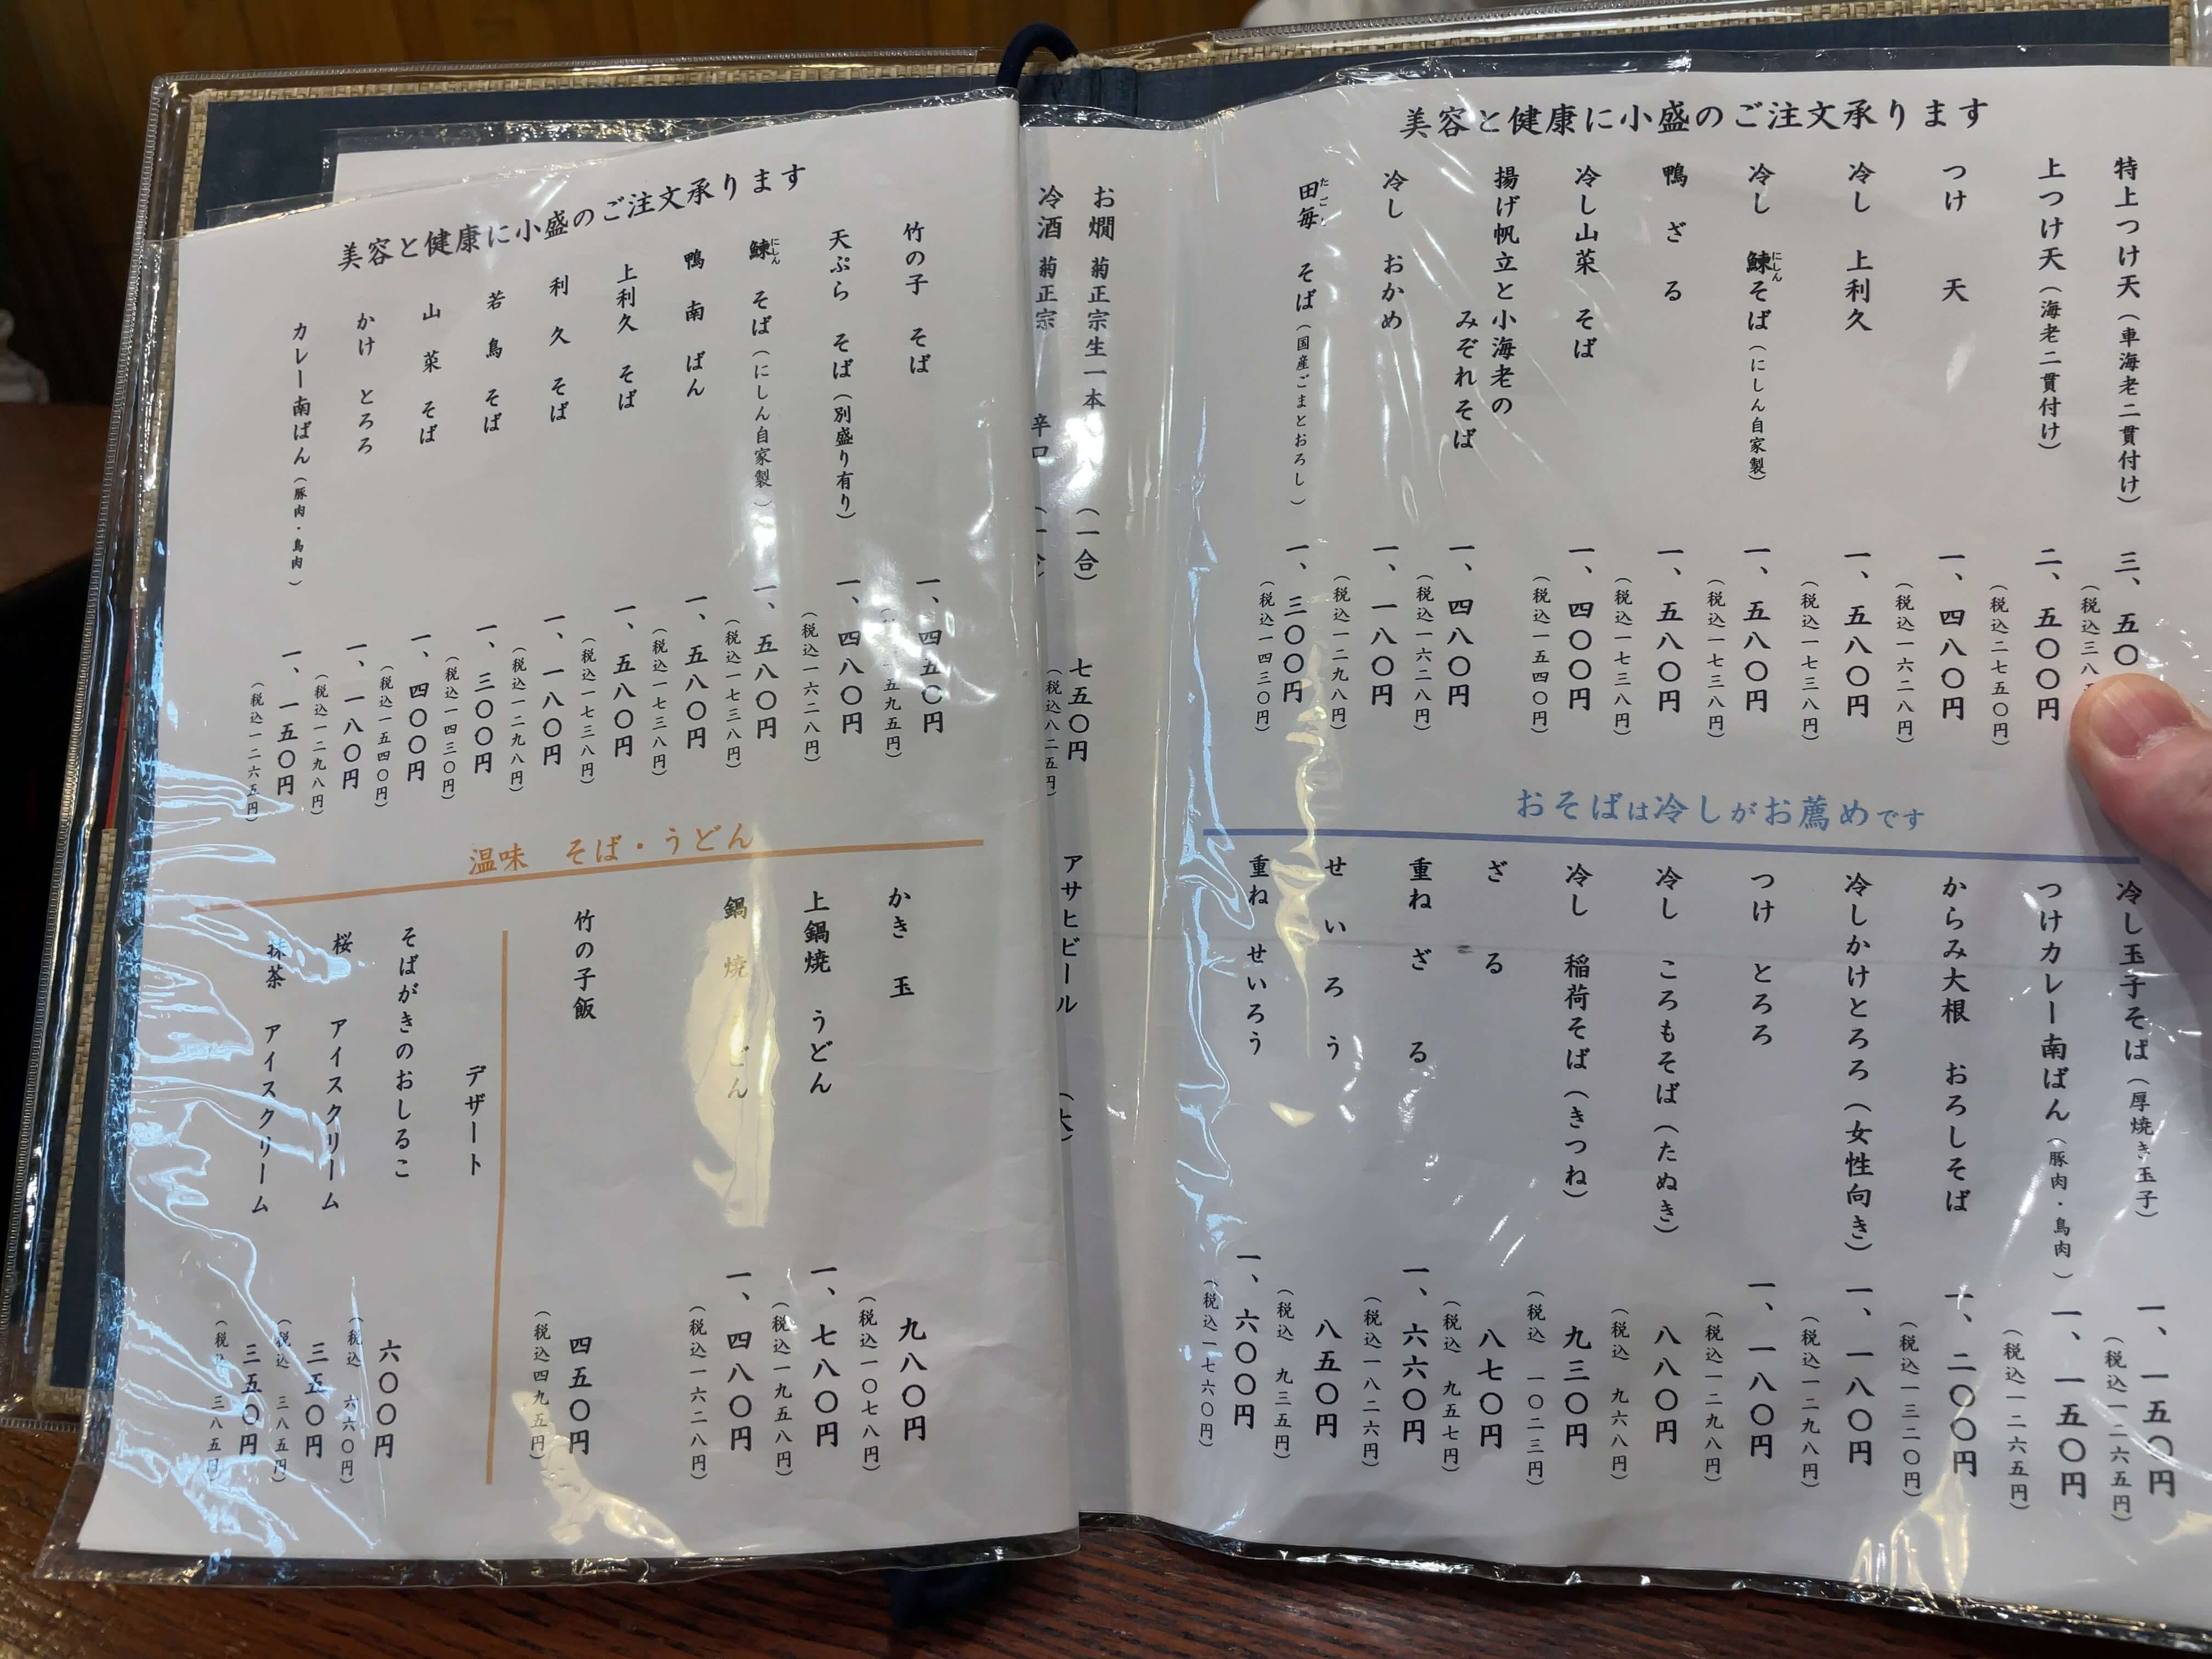 美容と健康に小盛のご注文承ります
特上つけ天（車海老二貫付け）
三、五〇
上つけ天（海老二貫付け）
二、五〇〇円
（税込二七五〇円）
つけ　天
一、四八〇円
（税込一六二八円）
冷し　上利久
一、五八〇円
（税込一七三八円）
冷し　鰊そば（にしん自家製）
にしん
一、五八〇円
（税込一七三八円）
鴨　ざ　る
一、五八〇円
（税込一七三八円）
冷し山菜　そば
一、四〇〇円
（税込一五四〇円）
揚げ帆立と小海老の
みぞれそば
一、四八〇円
（税込一六二八円）
冷し　おかめ
一、一八〇円
（税込一二九八円）
田毎　そば（国産ごまとおろし）
一、三〇〇円
（税込一四三〇円）
おそばは冷しがお薦めです
冷し玉子そば（厚焼き玉子）
一、一五〇円
（税込一二六五円）
つけカレー南ばん（豚肉・鳥肉）
一、一五〇円
（税込一二六五円）
からみ大根　おろしそば
一、二〇〇円
（税込一三二〇円）
冷しかけとろろ（女性向き）
一、一八〇円
（税込一二九八円）
つけ　とろろ
一、一八〇円
（税込一二九八円）
冷し　ころもそば（たぬき）
八八〇円
（税込　九六八円）
冷し　稲荷そば（きつね）
九三〇円
（税込　一〇二三円）
ざ　る
八七〇円
（税込　九五七円）
重ね　ざ　る
一、六六〇円
（税込一八二六円）
せ　い　ろ　う
八五〇円
（税込　九三五円）
重ね　せいろう
一、六〇〇円
（税込一七六〇円）
お燗　菊正宗生一本　（一合）　七五〇円
（税込八二五円）
冷酒　菊正宗　辛口
アサヒビール　（大）
美容と健康に小盛のご注文承ります
竹の子　そば
一、四五〇円
五九五円）
天ぷら　そば（別盛り有り）
一、四八〇円
（税込一六二八円）
鰊　そば（にしん自家製）
にしん
一、五八〇円
（税込一七三八円）
鴨　南　ばん
一、五八〇円
（税込一七三八円）
上利久　そば
一、五八〇円
（税込一七三八円）
利　久　そば
一、一八〇円
（税込一二九八円）
若　鳥　そば
一、三〇〇円
（税込一四三〇円）
山　菜　そば
一、四〇〇円
（税込一五四〇円）
かけ　とろろ
一、一八〇円
（税込一二九八円）
カレー南ばん（豚肉・鳥肉）
一、一五〇円
（税込一二六五円）
温味　そば・うどん
かき　玉
九八〇円
（税込一〇七八円）
上鍋焼　うどん
一、七八〇円
（税込一九五八円）
鍋　焼　どん
一、四八〇円
（税込一六二八円）
竹の子飯
四五〇円
（税込四九五円）
デザート
そばがきのおしるこ
六〇〇円
（税込　六六〇円）
桜　アイスクリーム
三五〇円
（税込　三八五円）
抹茶　アイスクリーム
三五〇円
（税込　三八五円）